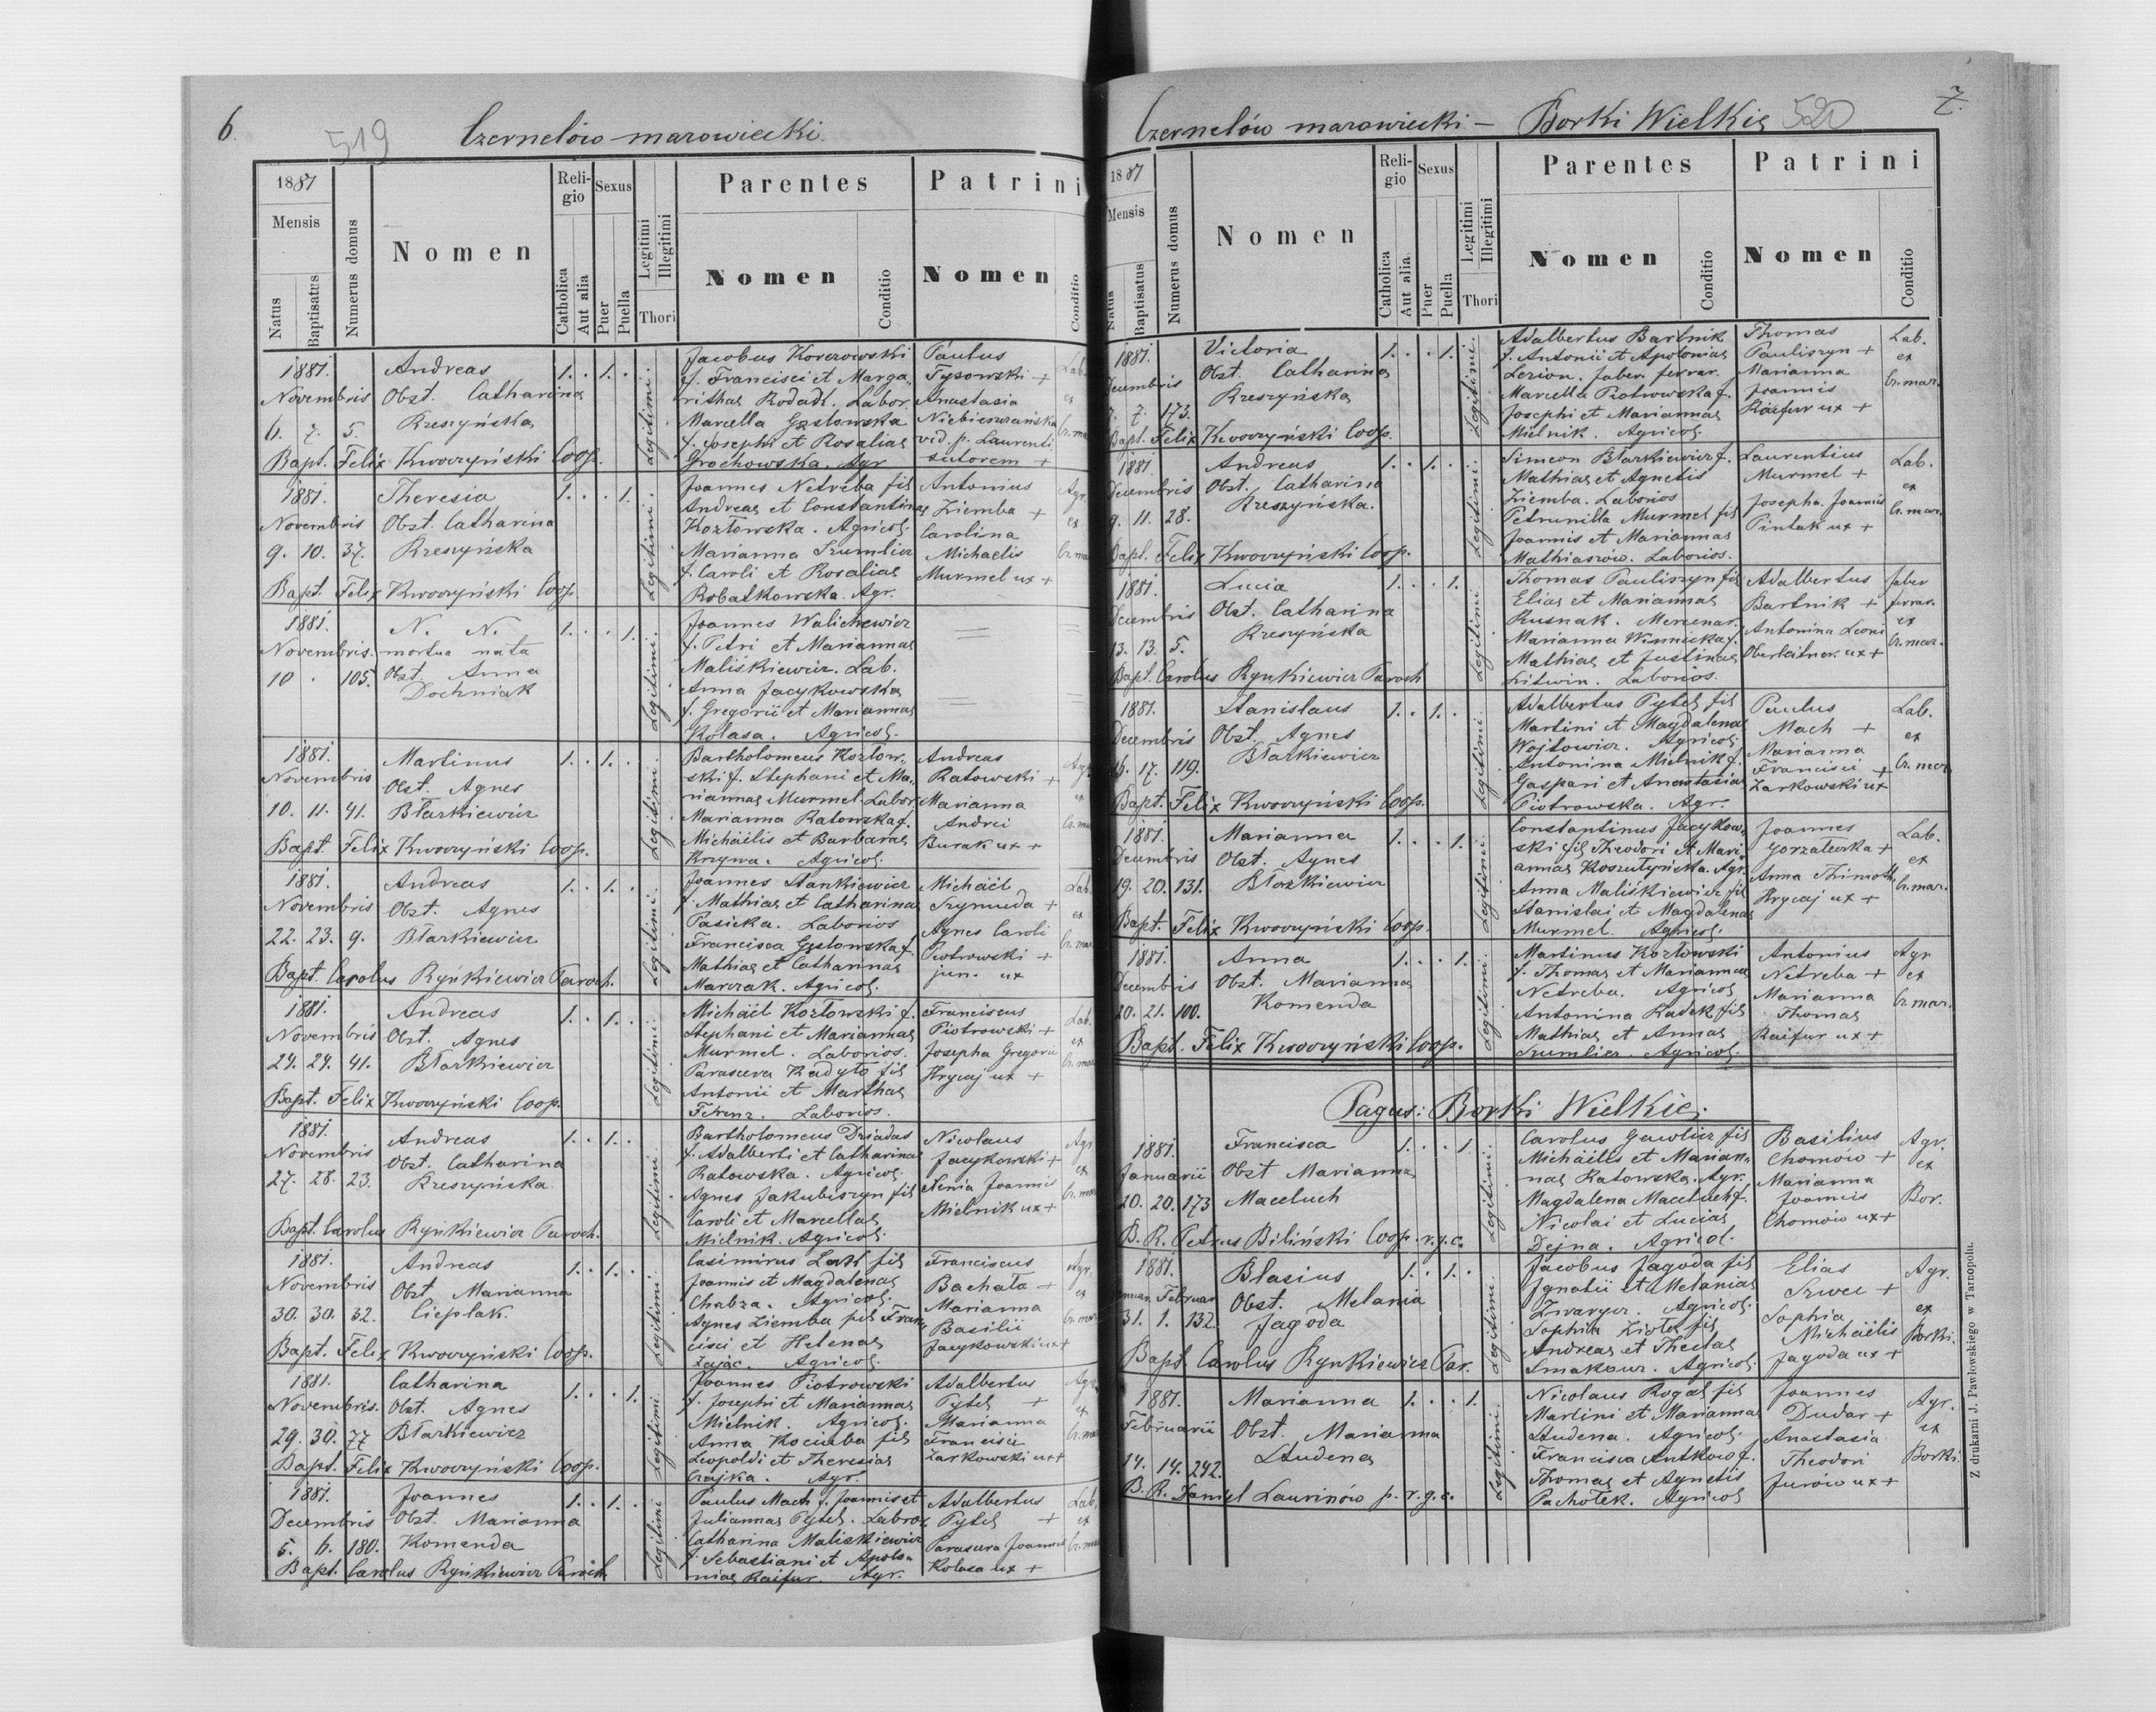 6.
519
Czernelów-mazowiecki.
1881
Mensis
Natus
Baptisatus
Numerus domus
Nomen
Religio
Catholica
Aut alia
Sexus
Puer
Puella
Legitimi
Illegitimi
Thori
Parentes
Nomen
Conditio
Patrini
Nomen
Conditio
1881.
Novembris
6. 7. 5.
Andreas
Obst. Catharina
Kreszyńska
Bapt. Felix Kwoczyński Coop.
1. . 1. .
Legitimi.
Jacobus
f. Francisci et Marga-
rithae Labor.
Marcella Gęstowska
f. Josephi et Rosaliae
Grochowska. Agr
Paulus
Tysowski +
Anastasia
vid. p. Laurenti
sutorem +
Lab.
ex
1881.
Novembris
9. 10. 37.
Theresia
Obst. Catharina
Kreszyńska
Bapt. Felix Kwoczyński Coop.
1. . . 1.
Legitimi.
Joannes Netreba fil
Andreae et Constantinae
Kozłowska. Agricol.
Marianna Szumlicz
f. Caroli et Rosaliae
Robatkowska. Agr.
Antonius
Ziemba +
Carolina
Michaelis
Murmel ux +
Agr.
ex
1881.
Novembris.
10 . 105.
N. N.
mortua nata
Obst. Anna
Dochniak
1. . . 1.
Legitimi.
Joannes Walichewicz
f. Petri et Mariannae
Maliśkiewicz. Lab.
Anna Jacykowska
f. Gregorii et Mariannae
Kolasa. Agricol.
1881.
Novembris
10. 11. 41.
Martinus
Obst. Agnes
Błazkiewicz
Bapt. Felix Kwoczyński Coop.
1. . 1. .
Legitimi.
Bartholomeus Kozłow-
ski f. Stephani et Ma-
riannae Murmel. Labor.
Marianna Ratowska f.
Michaëlis et Barbarae
Krzywa. Agricol.
Andreas
Ratowski +
Marianna
Andrei
Burak ux +
1881.
Novembris
22. 23. 9.
Andreas
Obst. Agnes
Błazkiewicz
Bapt. Carolus Rynkiewicz Paroch.
1. . 1. .
Legitimi.
Joannes Stankiewicz
f. Mathiae et Catharinae
Pasieka. Laborios
Francisca Gęstowska f.
Mathiae et Catharinae
Marczak. Agricol.
Michaël
+
Agnes Caroli
Piotrowski +
jun. ux
Lab.
ex
1881.
Novembris
24. 24. 41.
Andreas
Obst. Agnes
Błazkiewicz
Bapt. Felix Kwoczyński Coop.
1. . 1. .
Legitimi.
Michaël Kozłowski f.
Stephani et Mariannae
Murmel. Laborios.
Parasceva Kadyło fil
Antonii et Marthae
Ferenz. Laborios.
Franciscus
Piotrowski +
Josepha Gregorii
Hrycaj ux +
Lab.
ex
1881.
Novembris
27. 28. 23.
Andreas
Obst. Catharina
Kreszyńska
Bapt. Carolus Rynkiewicz Paroch.
1. . 1. .
Legitimi.
Bartholomeus Dziadas
f. Adalberti et Catharinae
Ratowska. Agricol.
Agnes Jakubiszyn fil
Caroli et Marcellae
Mielnik. Agricol.
Nicolaus
Jacykowski +
Xenia Joannis
Mielnik ux +
Agr
ex
1881.
Novembris
30. 30. 32.
Andreas
Obst Marianna
Cieplak.
Bapt. Felix Kwoczyński Coop.
1. . 1. .
Legitimi.
Casimirus fil
Joannis et Magdalenae
Chabza. Agricol.
Agnes Ziemba fil Fran-
cisci et Helenae
Zając. Agricol.
Franciscus
Bachała +
Marianna
Basilii
Jacykowski ux +
Agr.
ex
1881.
Novembris.
29. 30. 77
Catharina
Obst. Agnes
Błazkiewicz
Bapt. Felix Kwoczyński Coop.
1. . . 1.
Legitimi.
Joannes Piotrowski
f. Josephi et Mariannae
Mielnik. Agricol.
Anna Kociuba fil
Leopoldi et Theresiae
Czajka. Agr.
Adalbertus
Pytel +
Marianna
Francisci
Żarkowski ux +
Agr.
ex
1881.
Decembris
5. 6. 180.
Joannes
Obst. Marianna
Komenda
Bapt. Carolus Rynkiewicz Paroch.
1. . 1. .
Legitimi
Paulus Mach f. Joannis et
Juliannae Pytel. Labor
Catharina Maliskiewicz
f. Sebastiani et Apolo-
niae Raifur. Agr.
Adalbertus
Pytel +
Parasceva Joannis
Kolasa ux +
Lab.
ex
7.
Czernelów mazowiecki — Borki Wielkie
520
1881
Mensis
Natus
Baptisatus
Numerus domus
Nomen
Religio
Catholica
Aut alia.
Sexus
Puer
Puella
Legitimi
Illegitimi
Thori
Parentes
Nomen
Conditio
Patrini
Nomen
Conditio
1881.
Decembris
7. 7. 173.
Victoria
Obst. Catharina
Kreszyńska
Bapt. Felix Kwoczyński Coop.
1. . . 1.
Legitimi.
Adalbertus Bartnik
f. Antonii et Apoloniae
Lezion. faber. ferrar.
Marcella Piotrowska f.
Josephi et Mariannae
Mielnik. Agricol.
Thomas
Pauliszyn +
Marianna
Joannis
Raifur ux +
Lab.
ex
Cz. maz.
1881.
Decembris
9. 11. 28.
Andreas
Obst. Catharina
Kreszyńska.
Bapt. Felix Kwoczyński Coop.
1. . 1. .
Legitimi.
Simeon Błazkiewicz f.
Mathiae et Agnetis
Ziemba. Laborios
Petrunilla Murmel fil
Joannis et Mariannae
Mathiaszów. Laborios.
Laurentius
Murmel +
Josepha. Joannis
Pintak ux +
Lab.
ex
Cz. maz.
1881.
Decembris
13. 13. 5.
Lucia
Obst. Catharina
Kreszyńska
Bapt. Carolus Rynkiewicz Paroch
1. . . 1.
Legitimi.
Thomas Pauliszyn fil
Eliae et Mariannae
Rusnak. Mercenar.
Marianna Winnicka f.
Mathiae et Justinae
Litwin. Laborios.
Adalbertus
Bartnik +
Antonina Leoni
Oberleitner. ux +
faber
ferrar.
ex
Cz. maz.
1881.
Decembris
16. 17. 119.
Stanislaus
Obst. Agnes
Błazkiewicz
Bapt. Felix Kwoczyński Coop.
1. . 1. .
Legitimi.
Adalbertus Pytel fil
Martini et Magdalenae
Wojtowicz. Agricol.
Antonina Mielnik f.
Gaspari et Anastasiae
Piotrowska. Agr.
Paulus
Mach +
Marianna
Francisci +
Żarkowski ux
Lab.
ex
Cz. maz
1881.
Decembris
19. 20. 131.
Marianna
Obst. Agnes
Błazkiewicz
Bapt. Felix Kwoczyński Coop.
1. . . 1.
Legitimi.
Constantinus Jacykow-
ski fil Theodori et Mari-
annae Koszutyńska. Agr.
Anna Maliśkiewicz fil
Stanislai et Magdalenae
Murmel. Agricol.
Joannes
+
Anna Thimoth.
Hrycaj ux +
Lab.
ex
Cz. maz.
1881.
Decembris
20. 21. 100.
Anna
Obst. Marianna
Komenda
Bapt. Felix Kwoczyński Coop.
1. . . 1.
Legitimi.
Martinus Kozłowski
f. Thomae et Mariannae
Netreba. Agricol
Antonina Ładek fil
Mathiae et Annae
Szumlicz. Agricol.
Antonius
Netreba +
Marianna
Thomae
Raifur ux +
Agr
ex
Cz. maz.
Pagus: Borki Wielkie:
1881.
Januarii
20. 20. 173
Francisca
Obst Marianna
Maceluch
B. R. Petrus Biliński Coop. r. g. c.
1. . . 1.
Legitimi.
Carolus Gawlicz fil
Michaëlis et Marian-
nae Ratowska. Agr.
Magdalena Maceluch f.
Nicolai et Luciae
Dejna. Agricol.
Basilius
Chomów +
Marianna
Joannis
Chomów ux +
Agr.
ex
Bor.
1881.
Januar. Februar
31. 1. 132.
Blasius
Obst. Melania
Jagoda
Bapt. Carolus Rynkiewicz Par.
1. . 1. .
Legitimi.
Jacobus Jagoda fil
Ignatii et Melaniae
Zwarycz. Agricol.
Sophia fil
Andreae et Theclae
Agricol.
Elias
Szwec +
Sophia
Michaëlis
Jagoda ux +
Agr.
ex
Borki.
1881.
Februarii
14. 14. 242.
Marianna
Obst. Marianna
Studena
B. R. Daniel Laurinów p. r. g. c.
1. . . 1.
Legitimi.
Nicolaus Rogal fil
Martini et Marianna
Studena. Agricol.
Francisca Antków f.
Thomae et Agnetis
Pachołek. Agricol
Joannes
Dudar +
Anastasia
Theodori
Jurów ux +
Agr.
ex
Borki
Z drukarni J. Pawłowskiego w Tarnopolu.